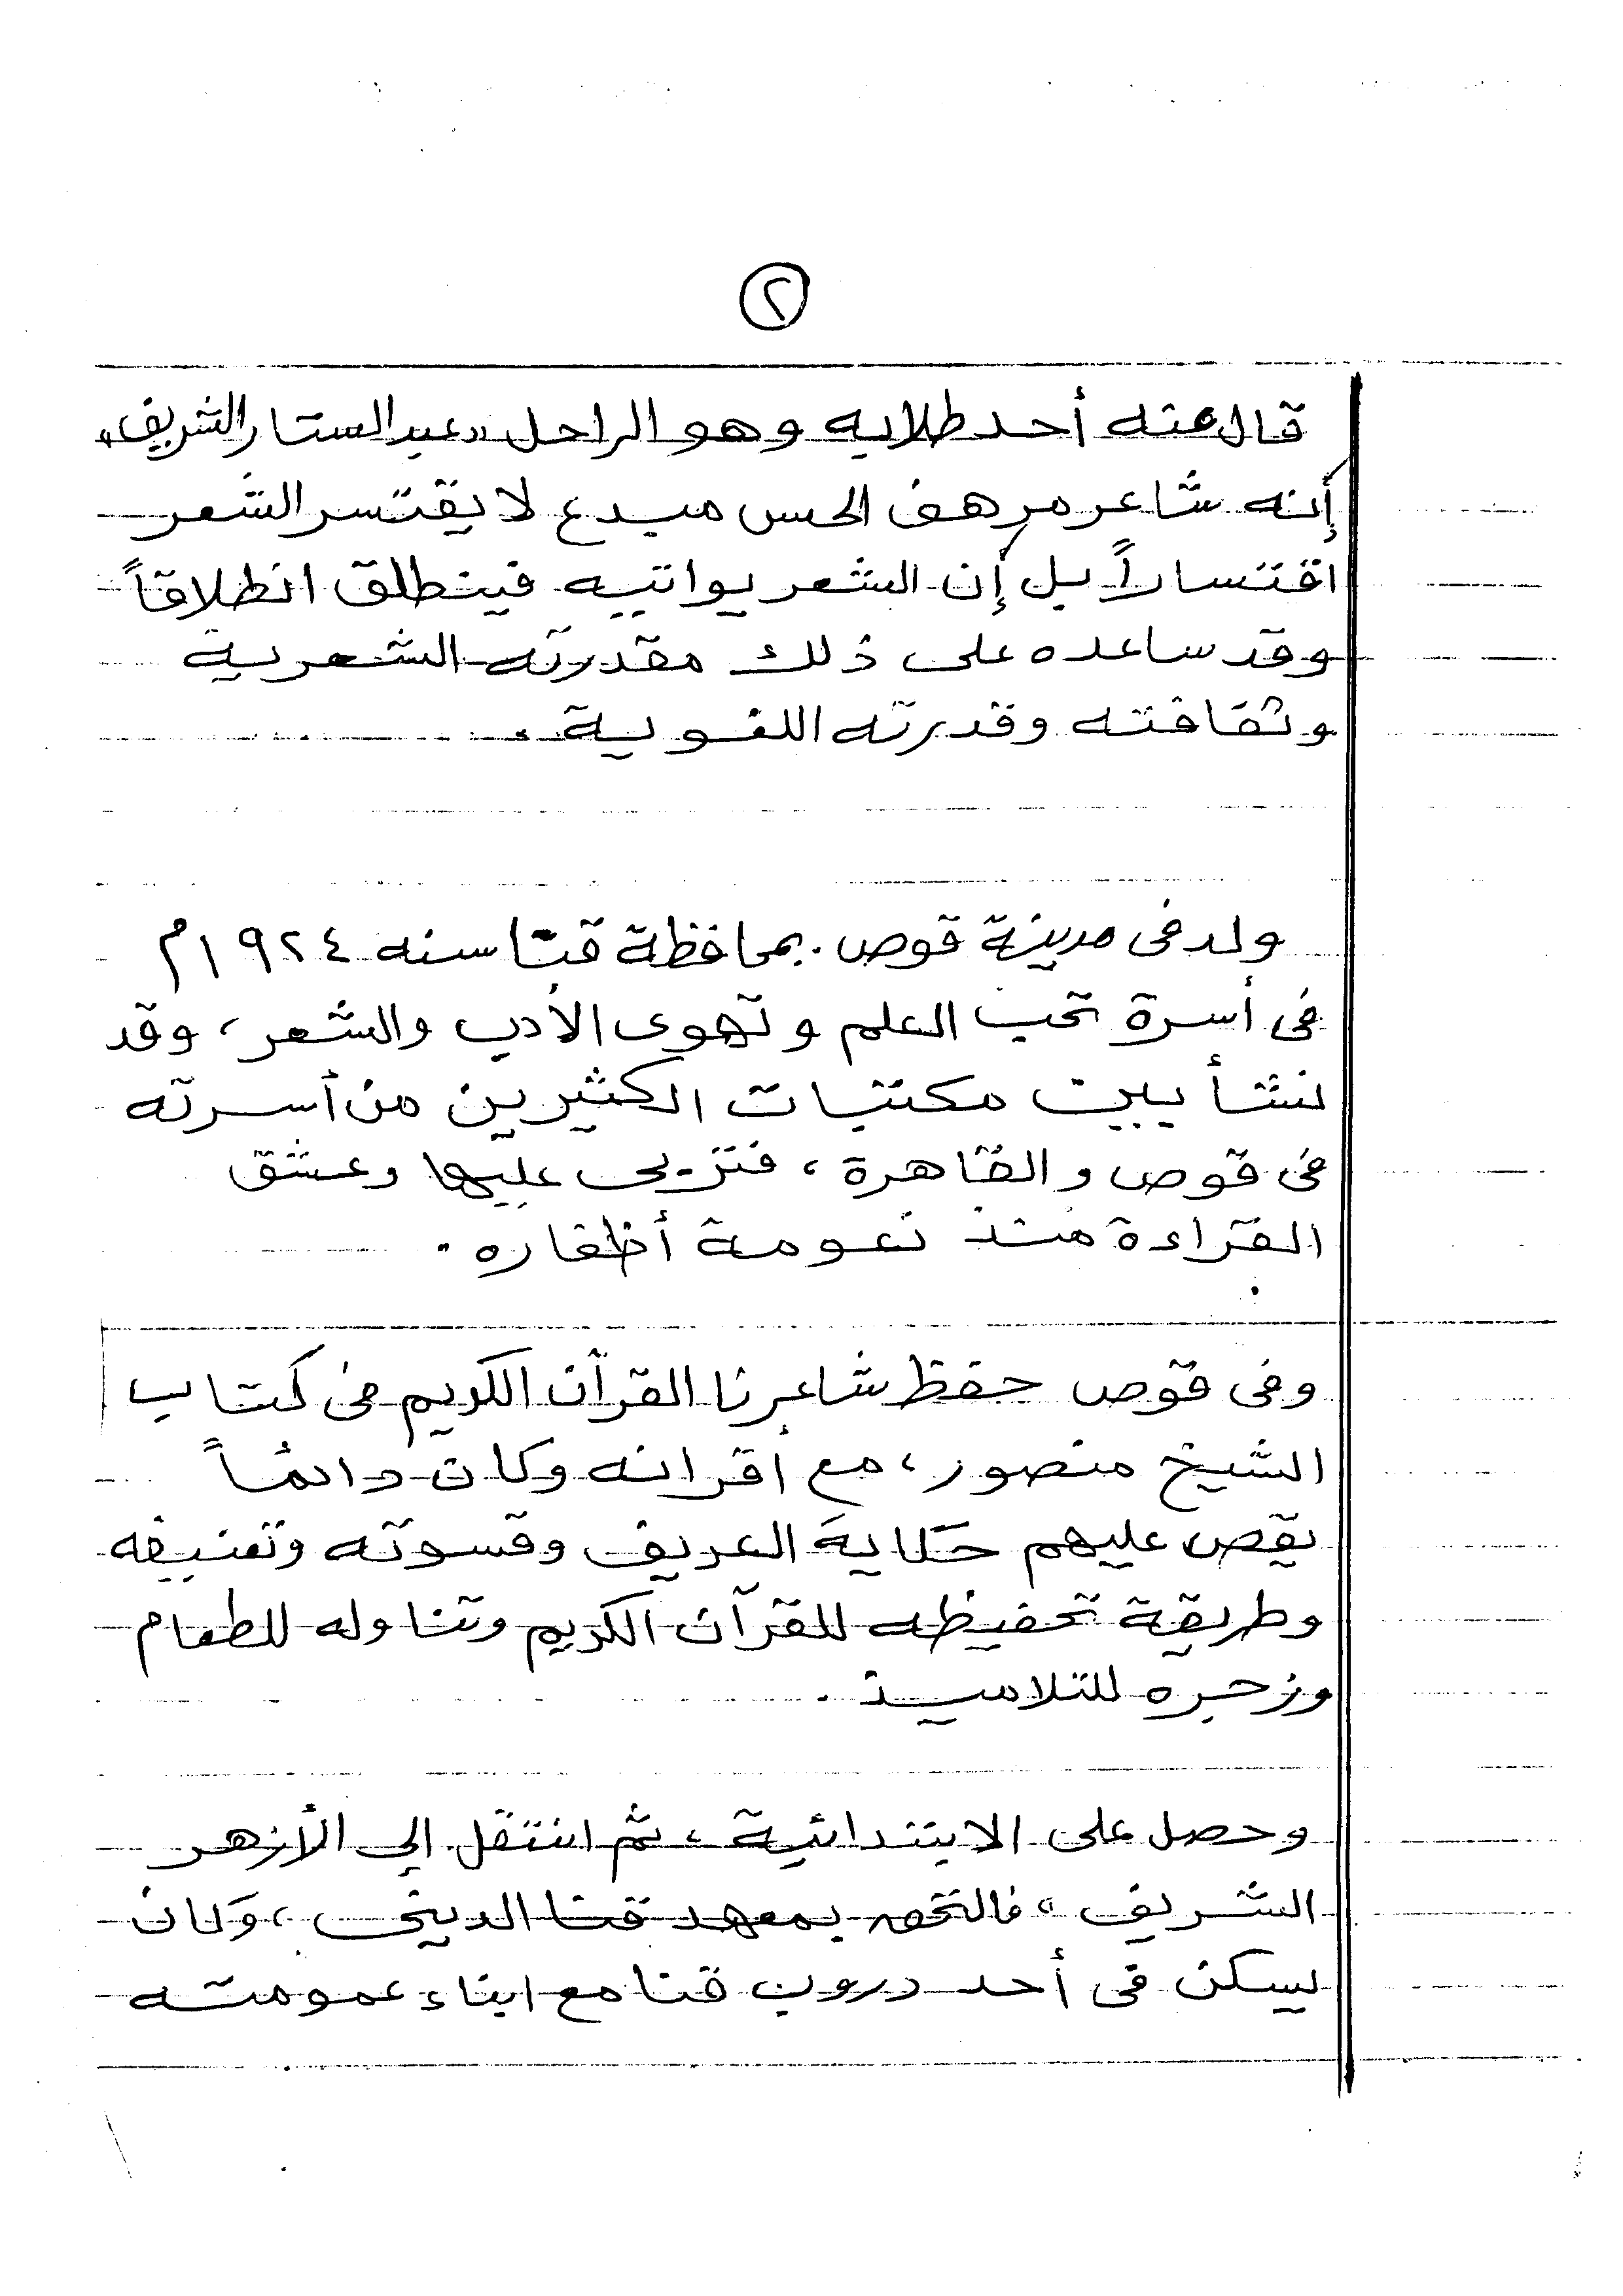 ٢
قال عنه أحد طلابه وهو الراحل «عبد الستار الشريف»
إنه شاعر مرهف الحس مبدع لا يقتسر الشعر
اقتساراً بل إن الشعر يواتيه فينطلق انطلاقاً
وقد ساعده على ذلك مقدرته الشعرية
وثقافته وقدرته اللغوية .
ولد فى مدينة قوص . بمحافظة قنا سنه ١٩٢٤م
فى أسرة تحب العلم وتهوى الأدب والشعر ، وقد
نشأ بين مكتبات الكثيرين من أسرته
فى قوص والقاهرة ، فتربى عليها وعشق
القراءة منذ نعومة أظفاره .
وفى قوص حفظ شاعرنا القرآن الكريم فى كتاب
الشيخ منصور ، مع أقرانه وكان دائماً
يقص عليهم حكاية العريف وقسوته وتعنيفه
وطريقة تحفيظه للقرآن الكريم وتناوله للطعام
وزجره للتلاميذ .
وحصل على الابتدائية ، ثم انتقل إلى الأزهر
الشريف ، فالتحق بمعهد قنا الدينى ، وكان
يسكن فى أحد دروب قنا مع ابناء عمومته